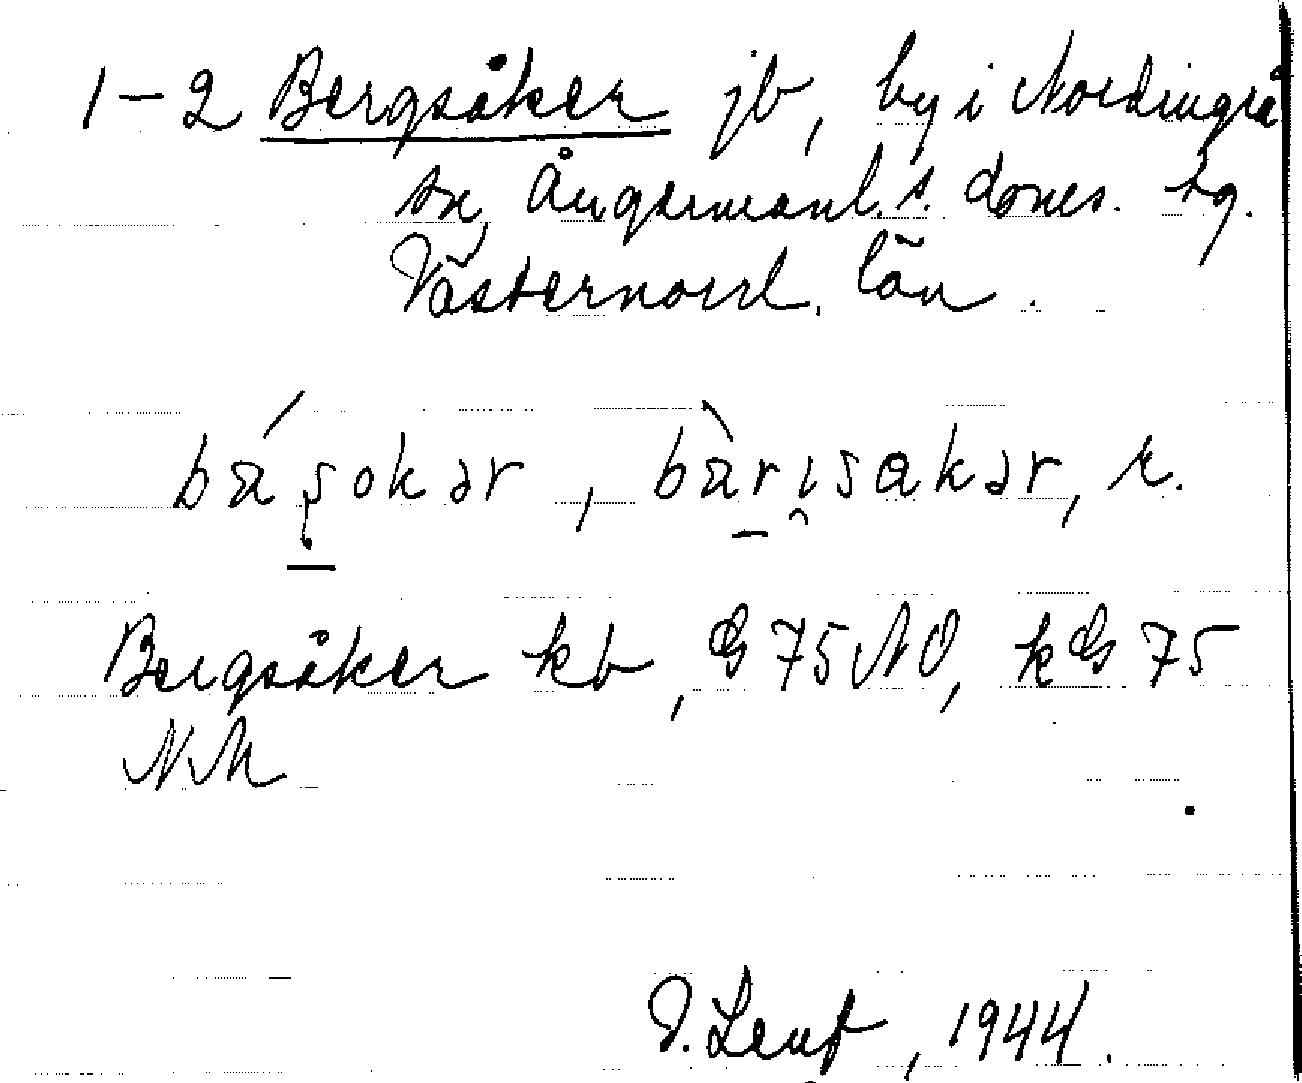 1-2 Bergsåker jb, by i Nordingrå
sn, Ångermanl. s. doms. tg.
Västernorrl. län.
bá̱ʂokər, bàr̠ı̯sakər, r.
Bergsåker kb, G 75 NO, k G 75
NM
J. Lenf, 1944.